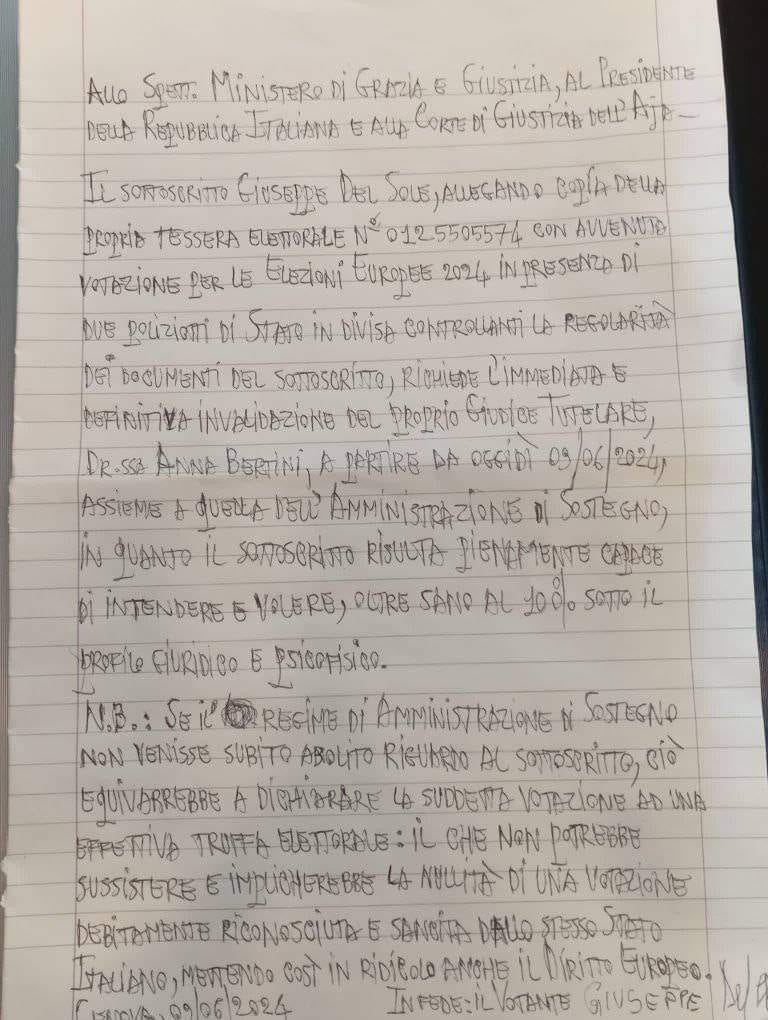 Allo Spett. Ministero di Grazia e Giustizia, al Presidente
della Repubblica Italiana e alla Corte di Giustizia dell'Aja_
Il sottoscritto Giuseppe Del Sole, allegando copia della
propria tessera elettorale N° 0125505574 con avvenuta
votazione per le Elezioni Europee 2024 in presenza di
due poliziotti di Stato in divisa controllanti la regolarità
dei documenti del sottoscritto, richiede l'immediata e
definitiva invalidazione del proprio Giudice Tutelare,
Dr.ssa Anna Bertini, a partire da oggidì 09/06/2024,
assieme a quella dell'Amministrazione di Sostegno,
in quanto il sottoscritto risulta pienamente capace
di intendere e volere, oltre sano al 100% sotto il
profilo giuridico e psicofisico.
N.B.: Se il regime di Amministrazione di Sostegno
non venisse subito abolito riguardo al sottoscritto, ciò
equivarrebbe a dichiarare la suddetta votazione ad una
effettiva truffa elettorale: il che non potrebbe
sussistere e implicherebbe la nullità di una votazione
debitamente riconosciuta e sancita dallo stesso Stato
Italiano, mettendo così in ridicolo anche il Diritto Europeo.
Genova, 09/06/2024 In fede: il votante Giuseppe Del